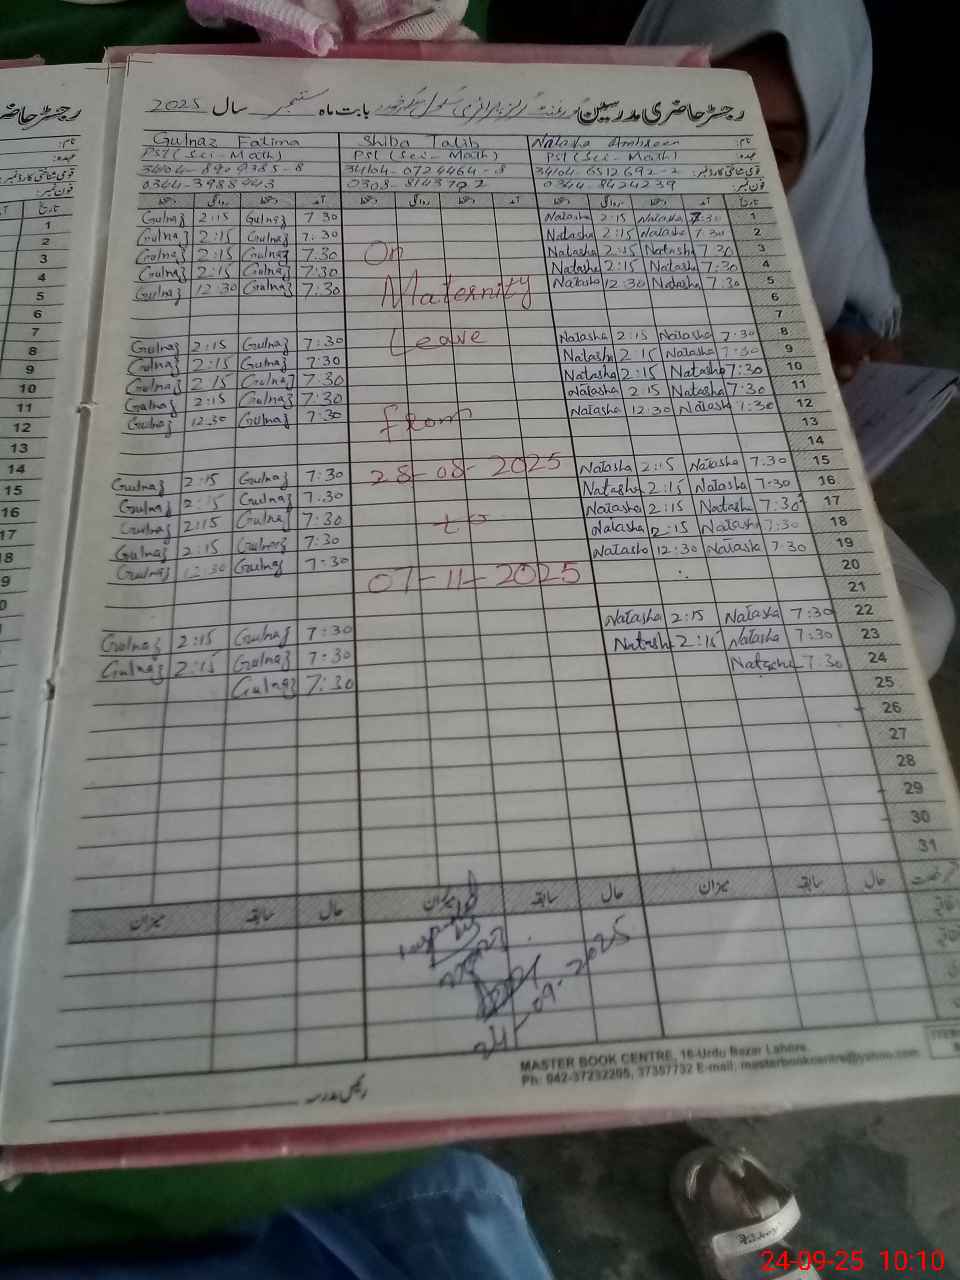 رجسٹر حاضری مدرسین گورنمنٹ گرلز پرائمری سکول بابت ماہ ستمبر سال 2025
نام: Natasha Shiba Talib Gulnaz Fatima
عہدہ: PST (Sci-Math) PST (Sci-Math) PST (Sci-Math)
قومی شناختی کارڈ نمبر: 34104-6512692-2 34104-0724464-8 34104-8909385-8
فون نمبر: 0344-8424239 0308-8143792 0344-3988443
تاریخ آمد دستخط روانگی دستخط آمد دستخط روانگی دستخط آمد دستخط روانگی دستخط
1 7:30 Natasha 2:15 Natasha 7:30 Gulnaz 2:15 Gulnaz
2 7:30 Natasha 2:15 Natasha 7:30 Gulnaz 2:15 Gulnaz
3 7:30 Natasha 2:15 Natasha On 7:30 Gulnaz 2:15 Gulnaz
4 7:30 Natasha 2:15 Natasha 7:30 Gulnaz 2:15 Gulnaz
5 7:30 Natasha 12:30 Natasha Maternity 7:30 Gulnaz 12:30 Gulnaz
6
7
8 7:30 Natasha 2:15 Natasha Leave 7:30 Gulnaz 2:15 Gulnaz
9 7:30 Natasha 2:15 Natasha 7:30 Gulnaz 2:15 Gulnaz
10 7:30 Natasha 2:15 Natasha 7:30 Gulnaz 2:15 Gulnaz
11 7:30 Natasha 2:15 Natasha 7:30 Gulnaz 2:15 Gulnaz
12 7:30 Natasha 12:30 Natasha From 7:30 Gulnaz 12:30 Gulnaz
13
14
15 7:30 Natasha 2:15 Natasha 28-08-2025 7:30 Gulnaz 2:15 Gulnaz
16 7:30 Natasha 2:15 Natasha 7:30 Gulnaz 2:15 Gulnaz
17 7:30 Natasha 2:15 Natasha to 7:30 Gulnaz 2:15 Gulnaz
18 7:30 Natasha 2:15 Natasha 7:30 Gulnaz 2:15 Gulnaz
19 7:30 Natasha 12:30 Natasha 07-11-2025 7:30 Gulnaz 12:30 Gulnaz
20
21
22 7:30 Natasha 2:15 Natasha 7:30 Gulnaz 2:15 Gulnaz
23 7:30 Natasha 2:15 Natasha 7:30 Gulnaz 2:15 Gulnaz
24 7:30 Natasha 7:30 Gulnaz
25
26
27
28
29
30
31
حال سابقہ میزان حال سابقہ میزان حال سابقہ میزان
24-09-2025
MASTER BOOK CENTRE, 16-Urdu Bazar Lahore.
Ph: 042-37232205, 37357732 E-mail: masterbookcentre@yahoo.com
رئیس مدرسہ
رجسٹر حاضری
تاریخ
1
2
3
4
5
6
7
8
9
10
11
12
13
14
15
16
17
18
24-09-25 10:10